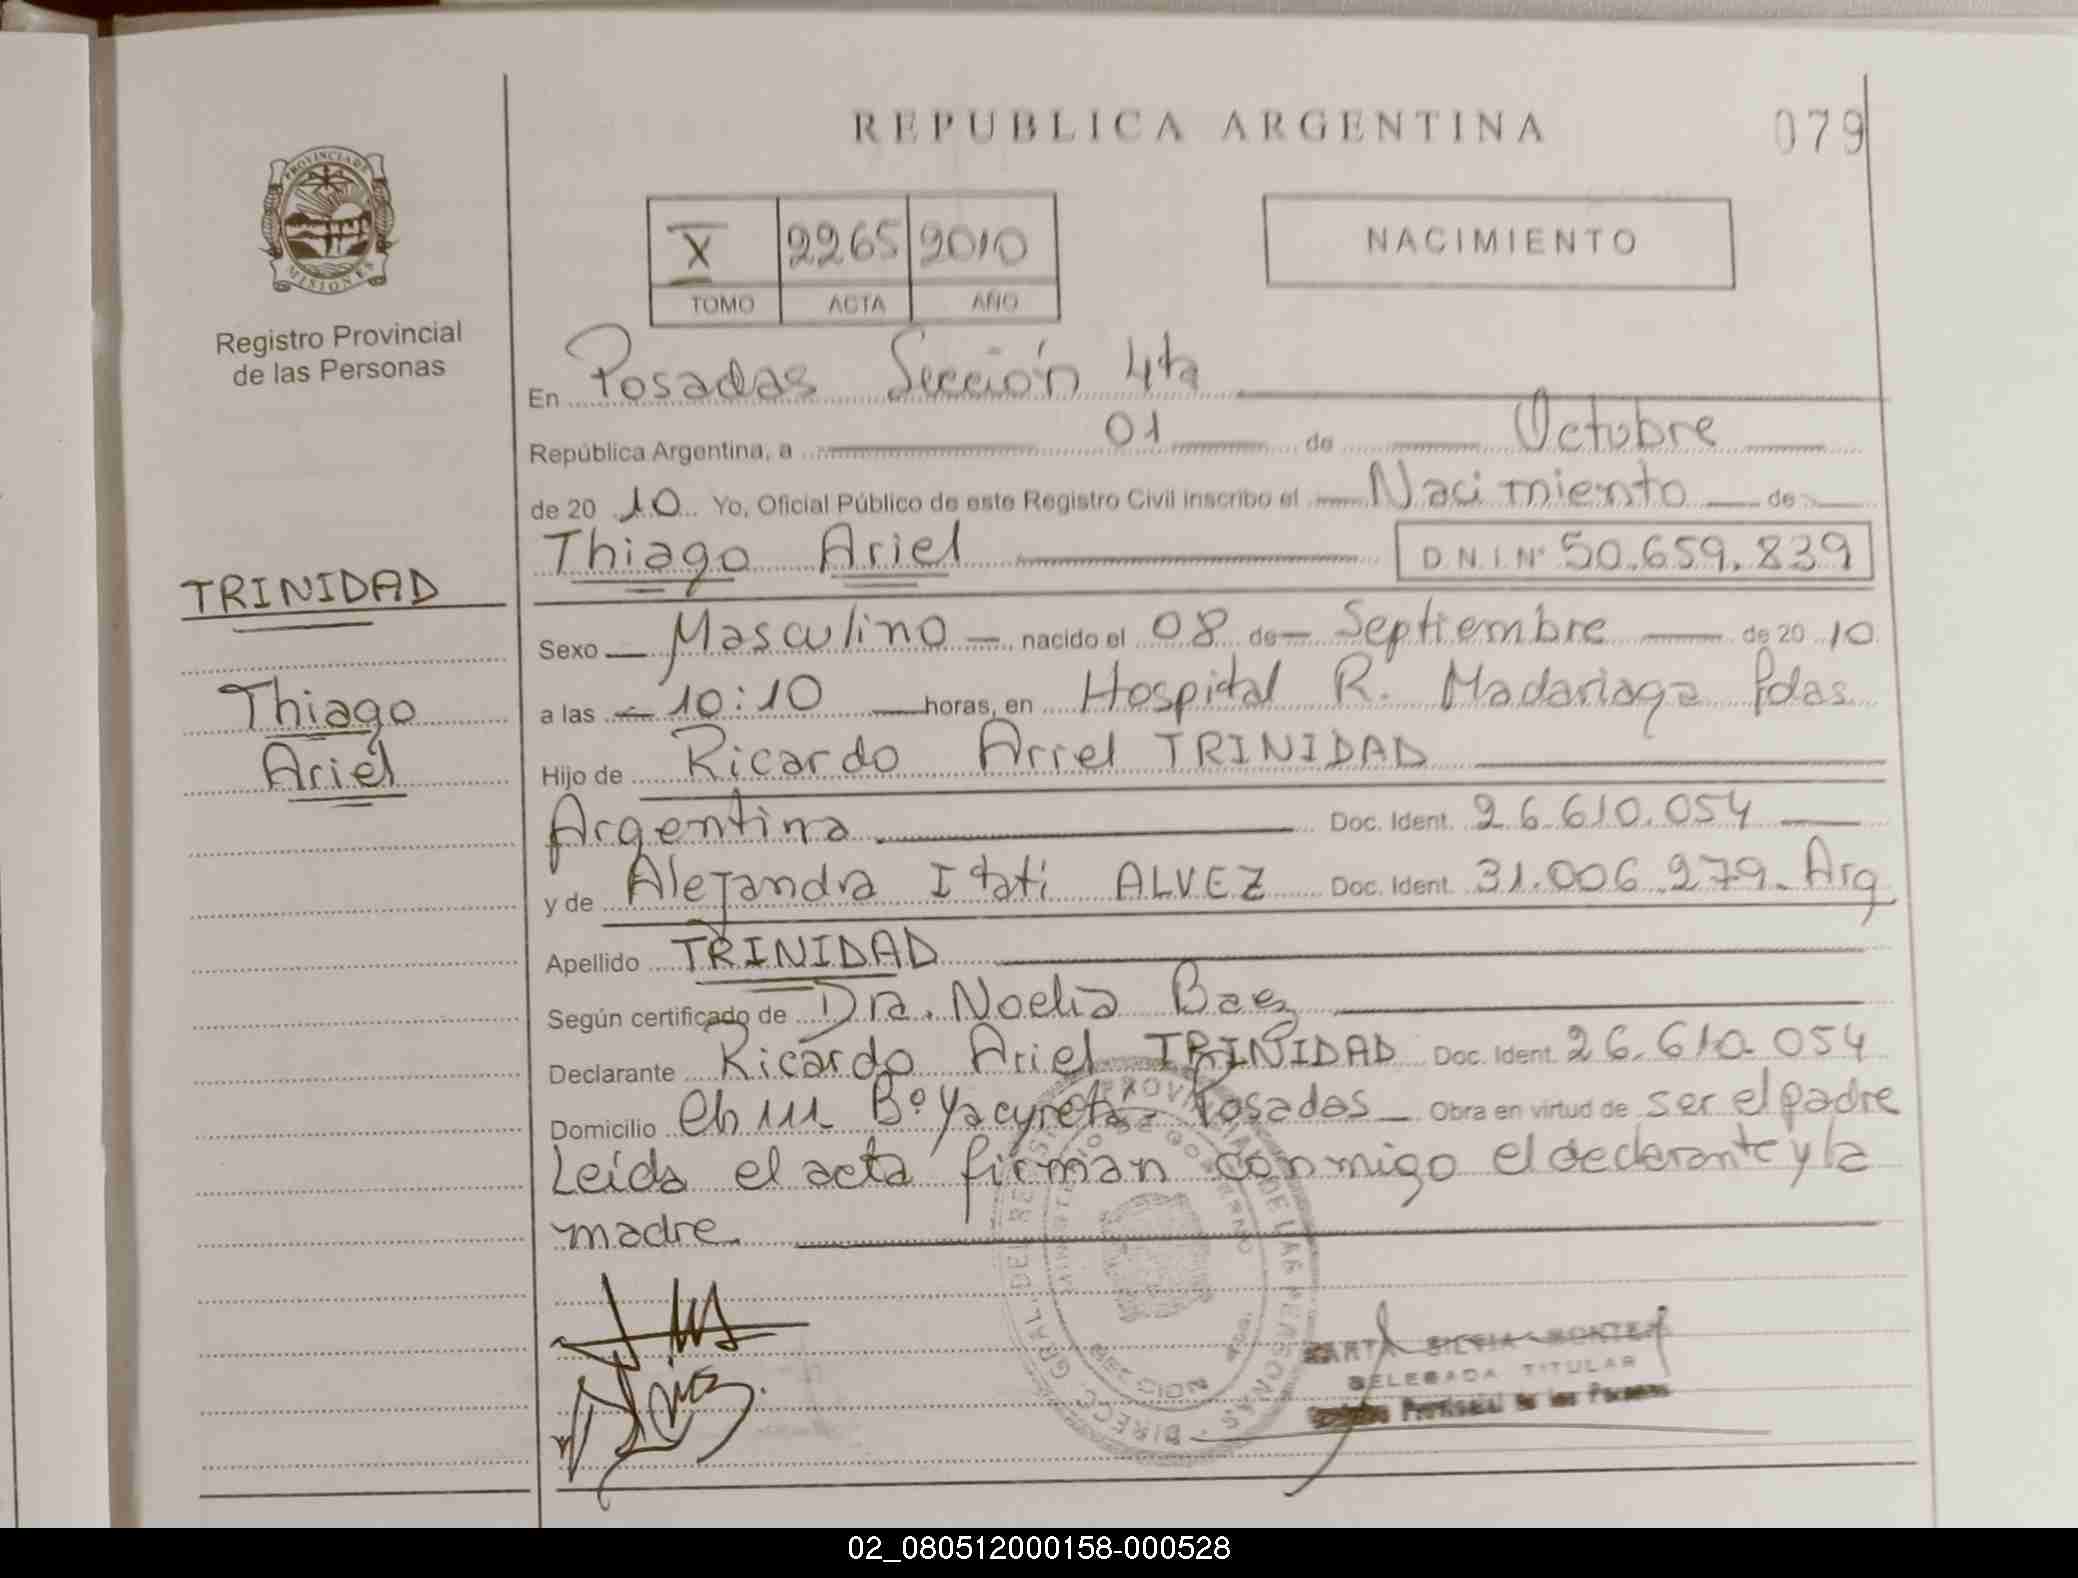 REPUBLICA ARGENTINA
079
PROVINCIA DE
MISIONES
Registro Provincial
de las Personas
X 2265 2010
TOMO ACTA AÑO
NACIMIENTO
En Posadas Sección 4ta
República Argentina, a 01 de Octubre
de 20 10 Yo, Oficial Público de este Registro Civil inscribo el Nacimiento de
Thiago Ariel D.N.I.Nº 50.659.839
TRINIDAD
Thiago
Ariel
Sexo Masculino nacido el 08 de Septiembre de 20 10
a las 10:10 horas, en Hospital R. Madariaga Pdas
Hijo de Ricardo Ariel TRINIDAD
Argentina Doc. Ident. 26.610.054
y de Alejandra Itati ALVEZ Doc. Ident. 31.006.279. Arg
Apellido TRINIDAD
Según certificado de Dra. Noelia Baez
Declarante Ricardo Ariel TRINIDAD Doc. Ident. 26.610.054
Domicilio Bº Yacyretá Posadas Obra en virtud de ser el padre
Leída el acta firman conmigo el declarante y la
madre.
DELEGADA TITULAR
Provincial de las Personas
02_080512000158-000528